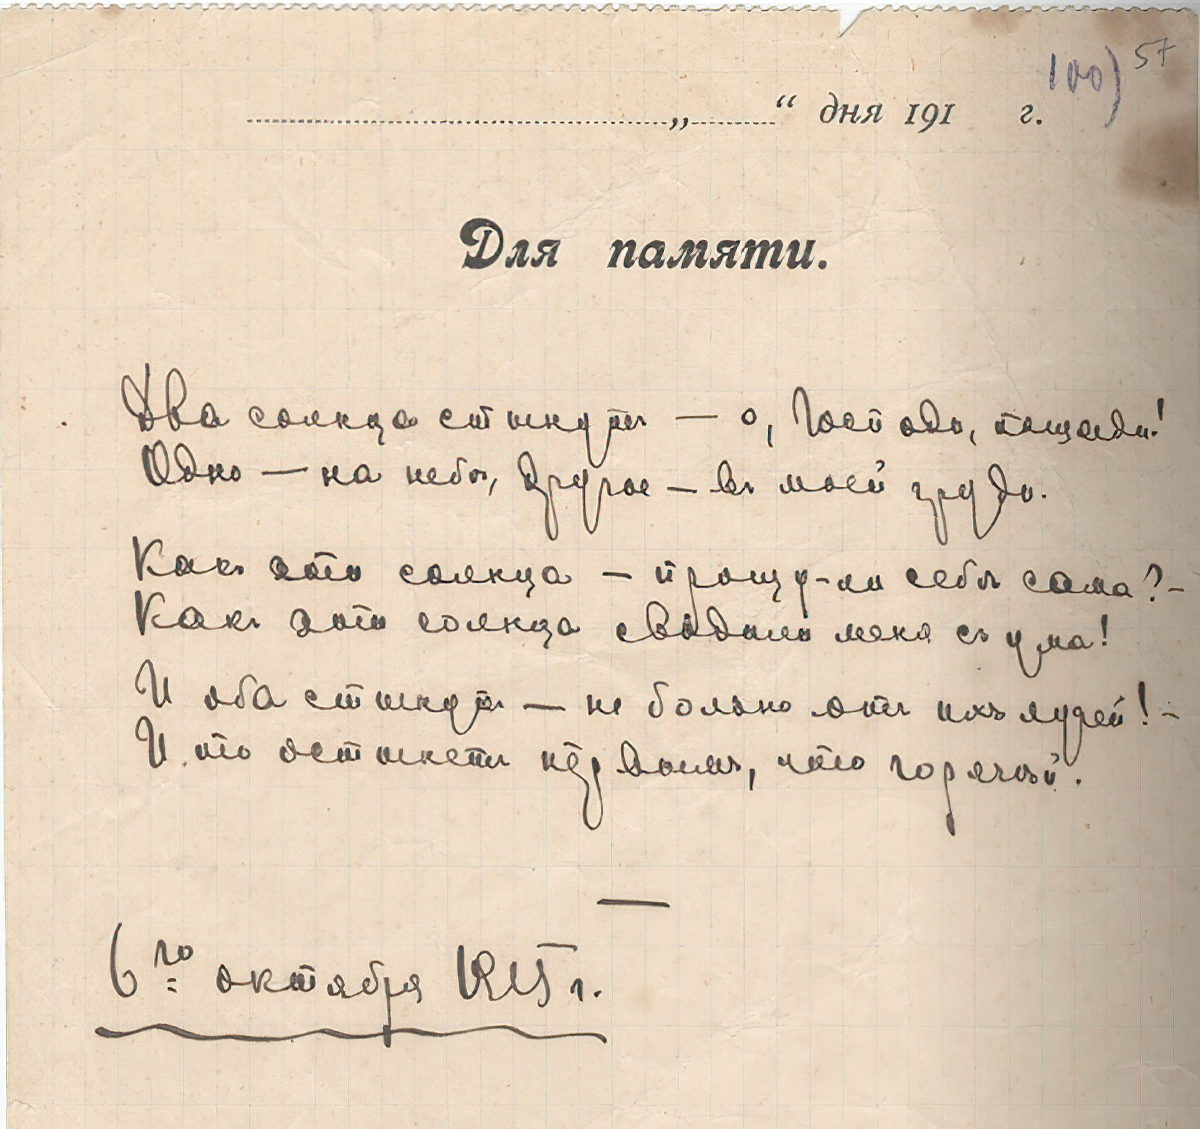 100) 57
„ “ дня 191 г.
Для памяти.
Два солнца стынутъ — о, Господи, пощади!
Одно — на небѣ, другое — въ моей груди.
Какъ эти солнца — прощу-ли себѣ сама? —
Какъ эти солнца сводили меня съ ума!
И оба стынутъ — не больно отъ ихъ лучей! —
И то остынетъ первымъ, что горячѣй.
6го октября 1915 г.